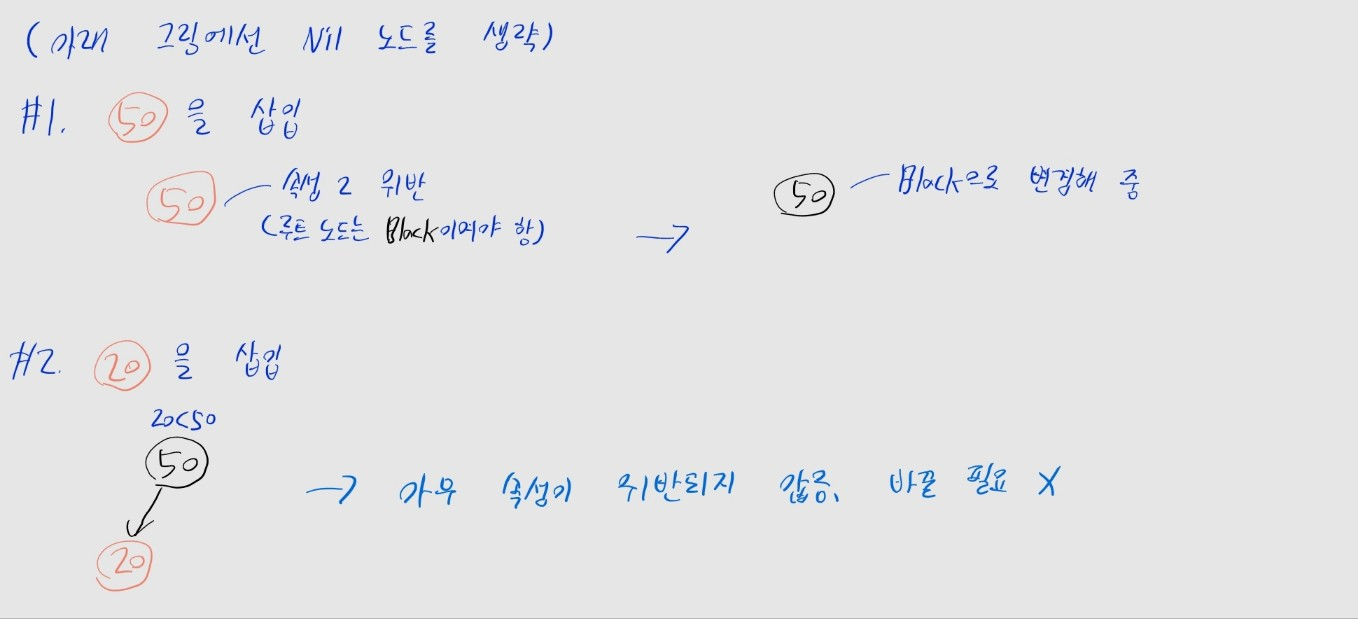 (아래 그림에선 Nil 노드를 생략)
#1. 50 을 삽입
50 속성 2 위반
(루트 노드는 Black이어야 함)
→
50 Black으로 변경해 줌
#2. 20 을 삽입
20<50
50
→ 아무 속성이 위반되지 않음, 바꿀 필요 X
20